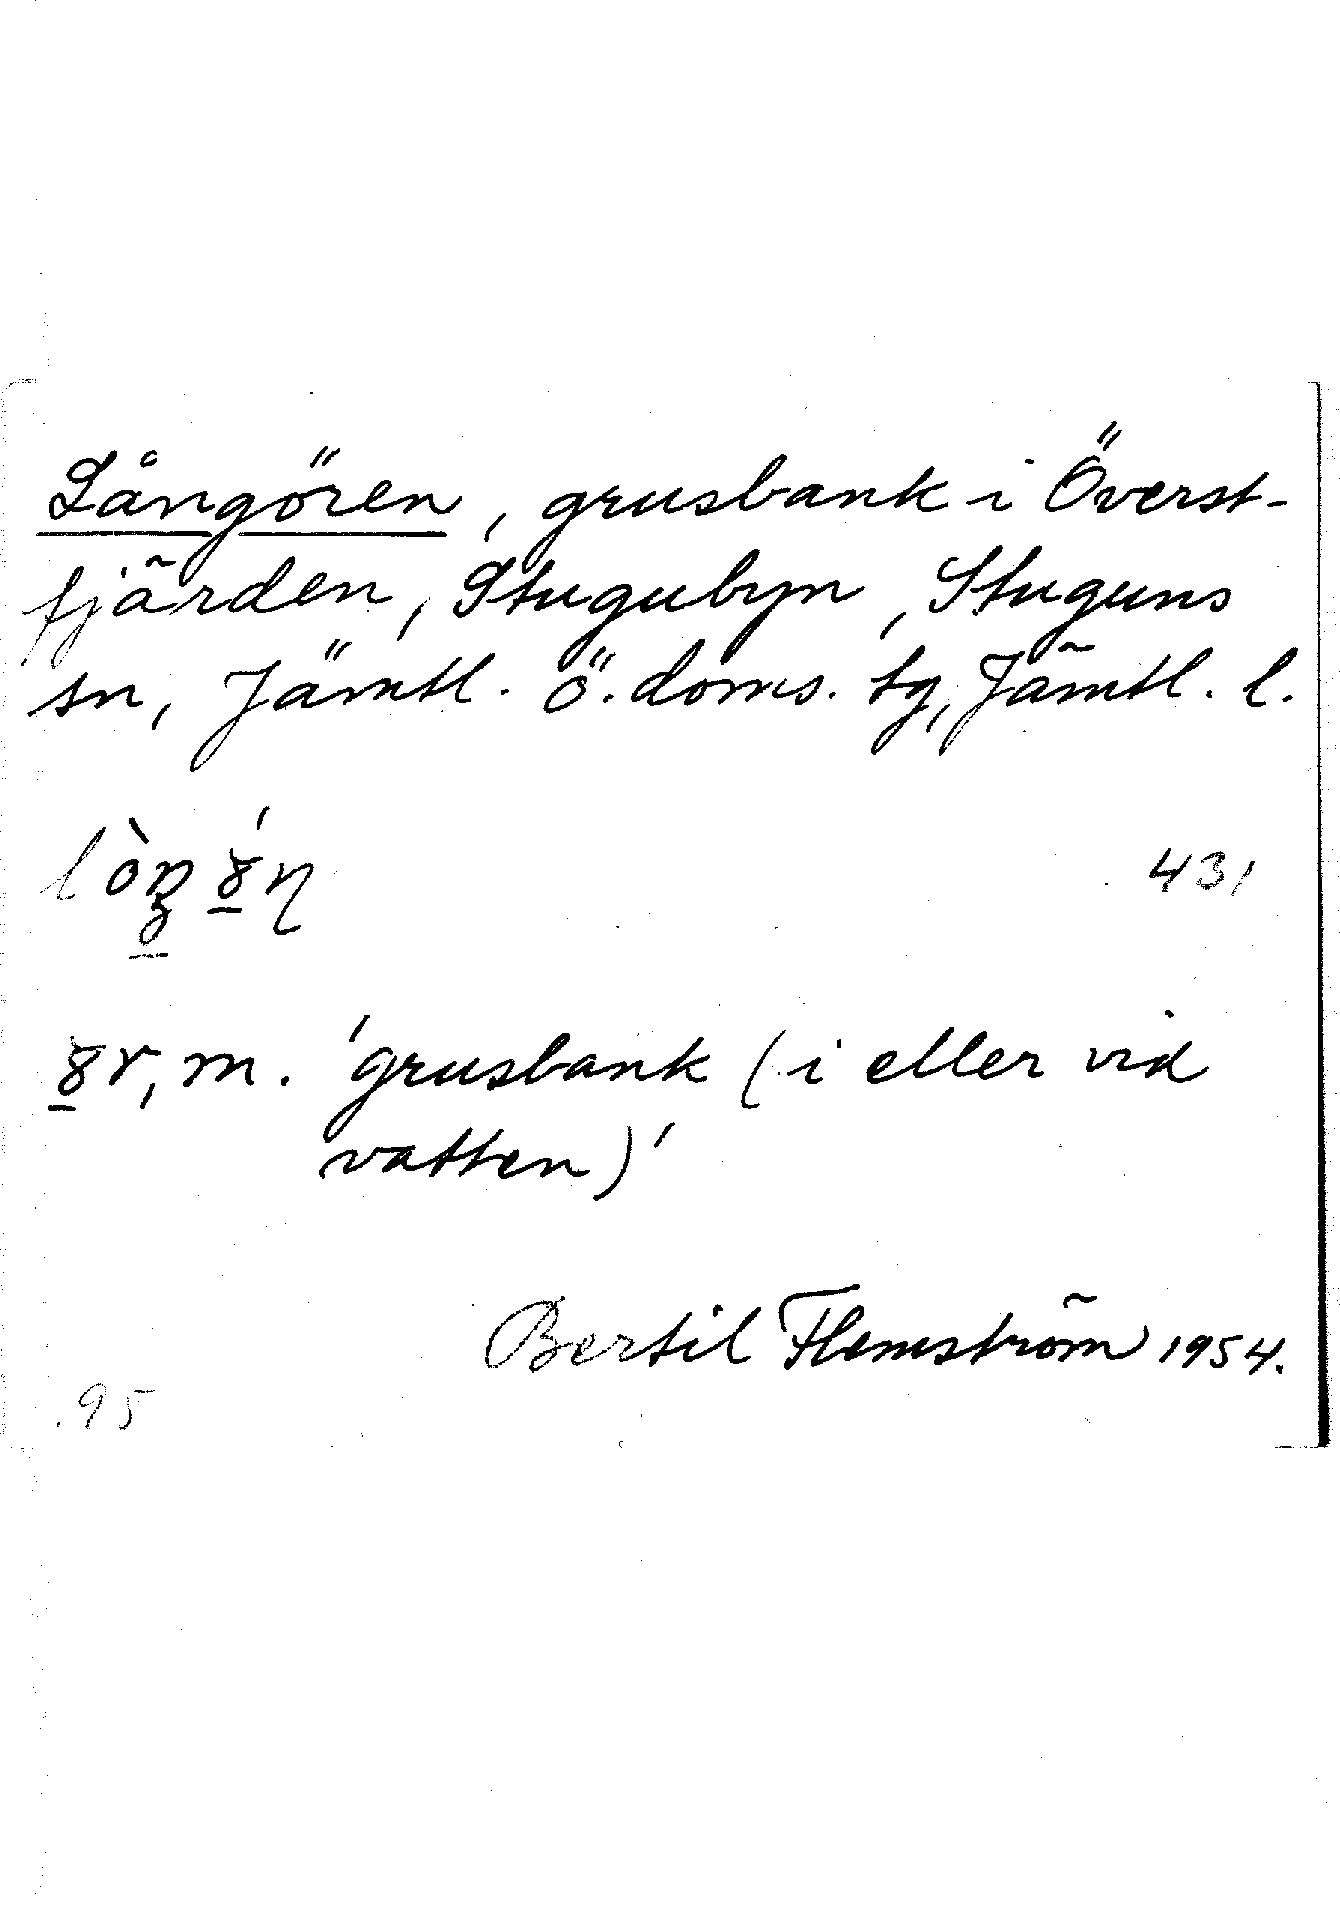 Långören, grusbank i Överst-
fjärden, Stugubyn, Stuguns
sn, Jämtl. ö. doms. tg, Jämtl. l.
431
m. 'grusbank (i eller vid
vatten)'
Bertil Flemström 1954.
95